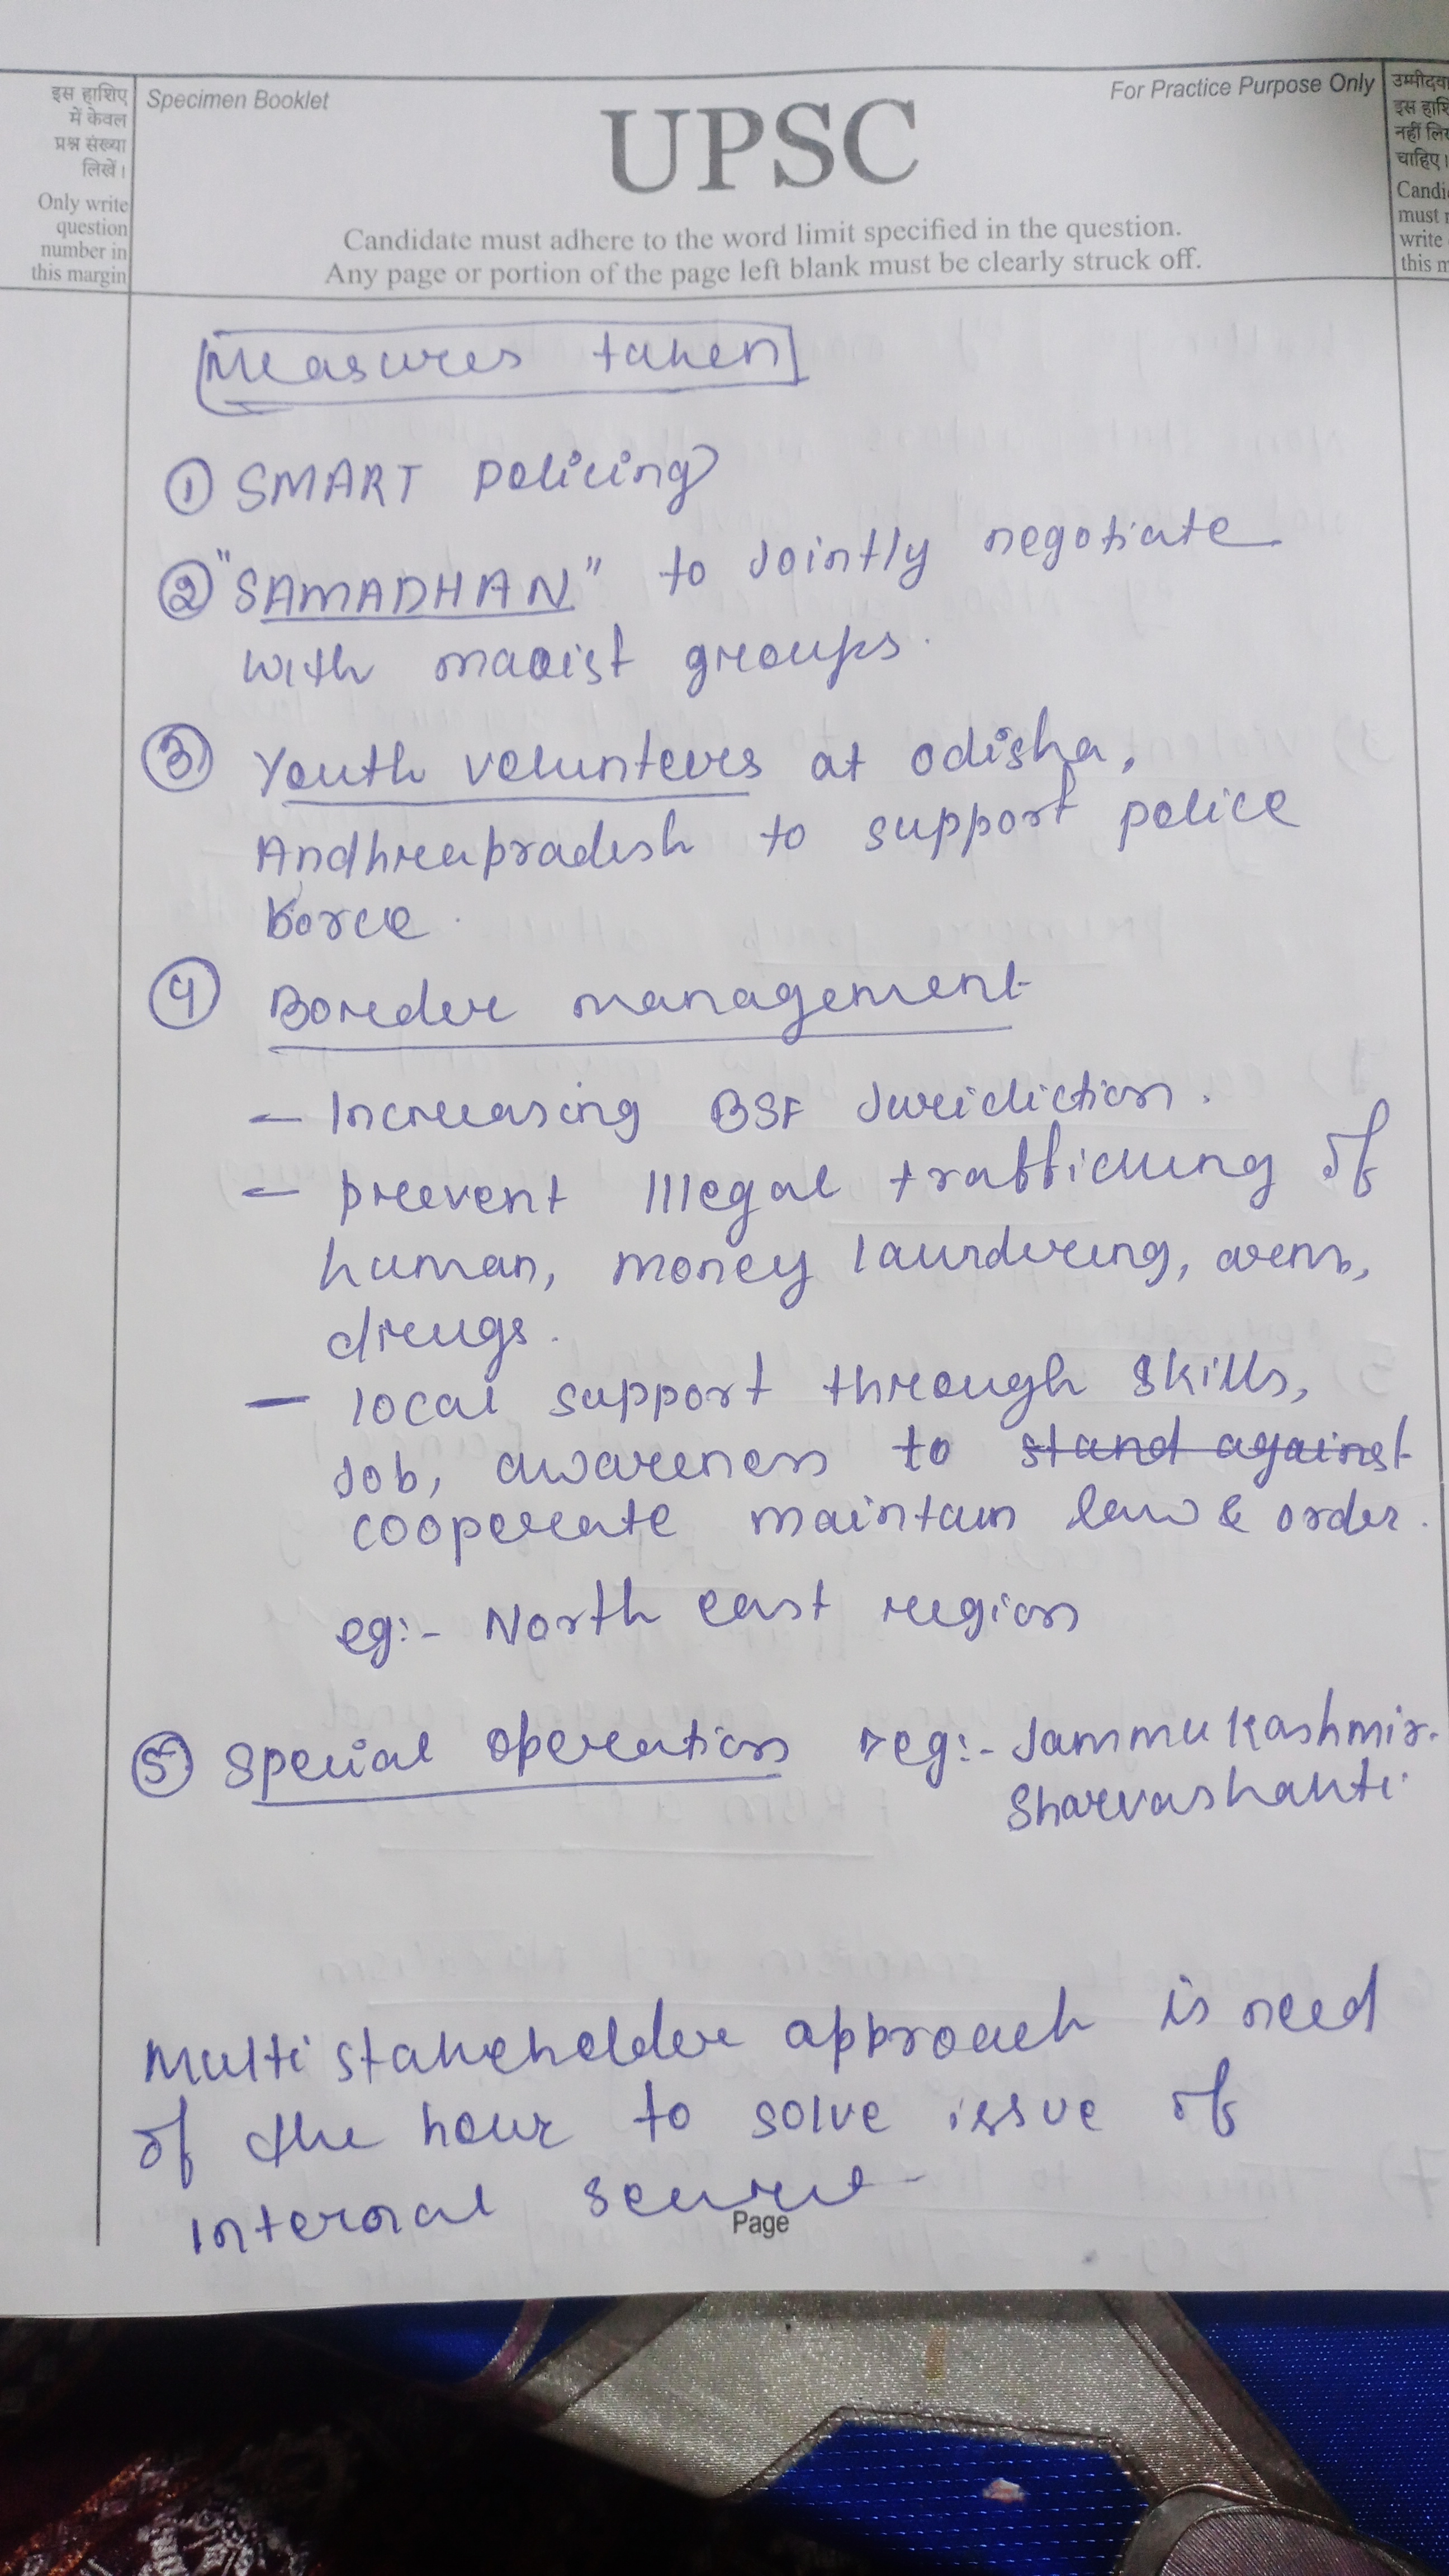 इस हाशिए
में केवल
प्रश्न संख्या
लिखें।
Only write
question
number in
this margin
Specimen Booklet
For Practice Purpose Only
UPSC
Candidate must adhere to the word limit specified in the question.
Any page or portion of the page left blank must be clearly struck off.
उम्मीदवा
इस हाशि
नहीं लिख
चाहिए।
Candi
must
write
this m
Measures taken
① SMART policing
② "SAMADHAN" to Jointly negotiate
with maoist groups.
③ Youth volunteers at odisha,
Andhrapradesh to support police
force.
④ Border management
- Increasing BSF Juridiction.
- prevent Illegal trafficking of
human, money laundering, arms,
drugs.
- local support through skills,
Job, awareness to stand against
cooperate maintain law & order.
eg:- North east region
⑤ Special operation eg:- Jammu Kashmir.
Sharvashakti
Multi stakeholder approach is need
of the hour to solve issue of
internal
Page